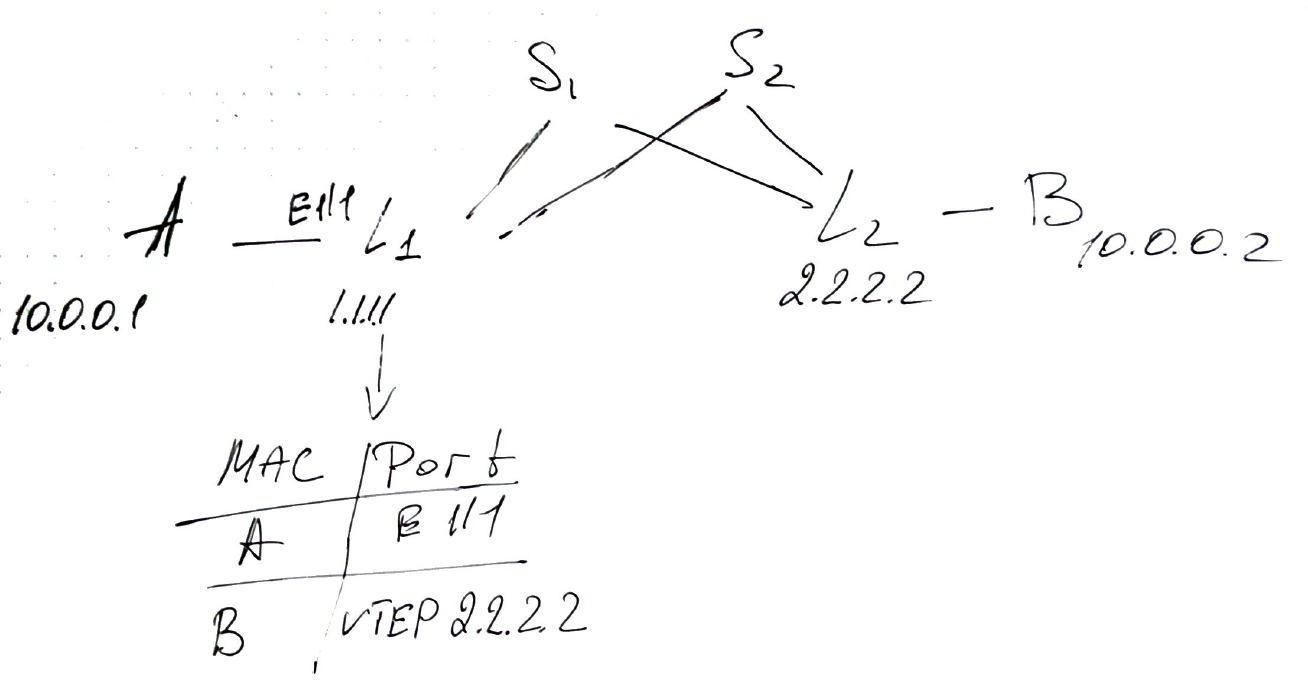 S1 S2
A E1/1 L1 L2 B
10.0.0.1 1.1.1.1 2.2.2.2 10.0.0.2
MAC Port
A E1/1
B VTEP 2.2.2.2